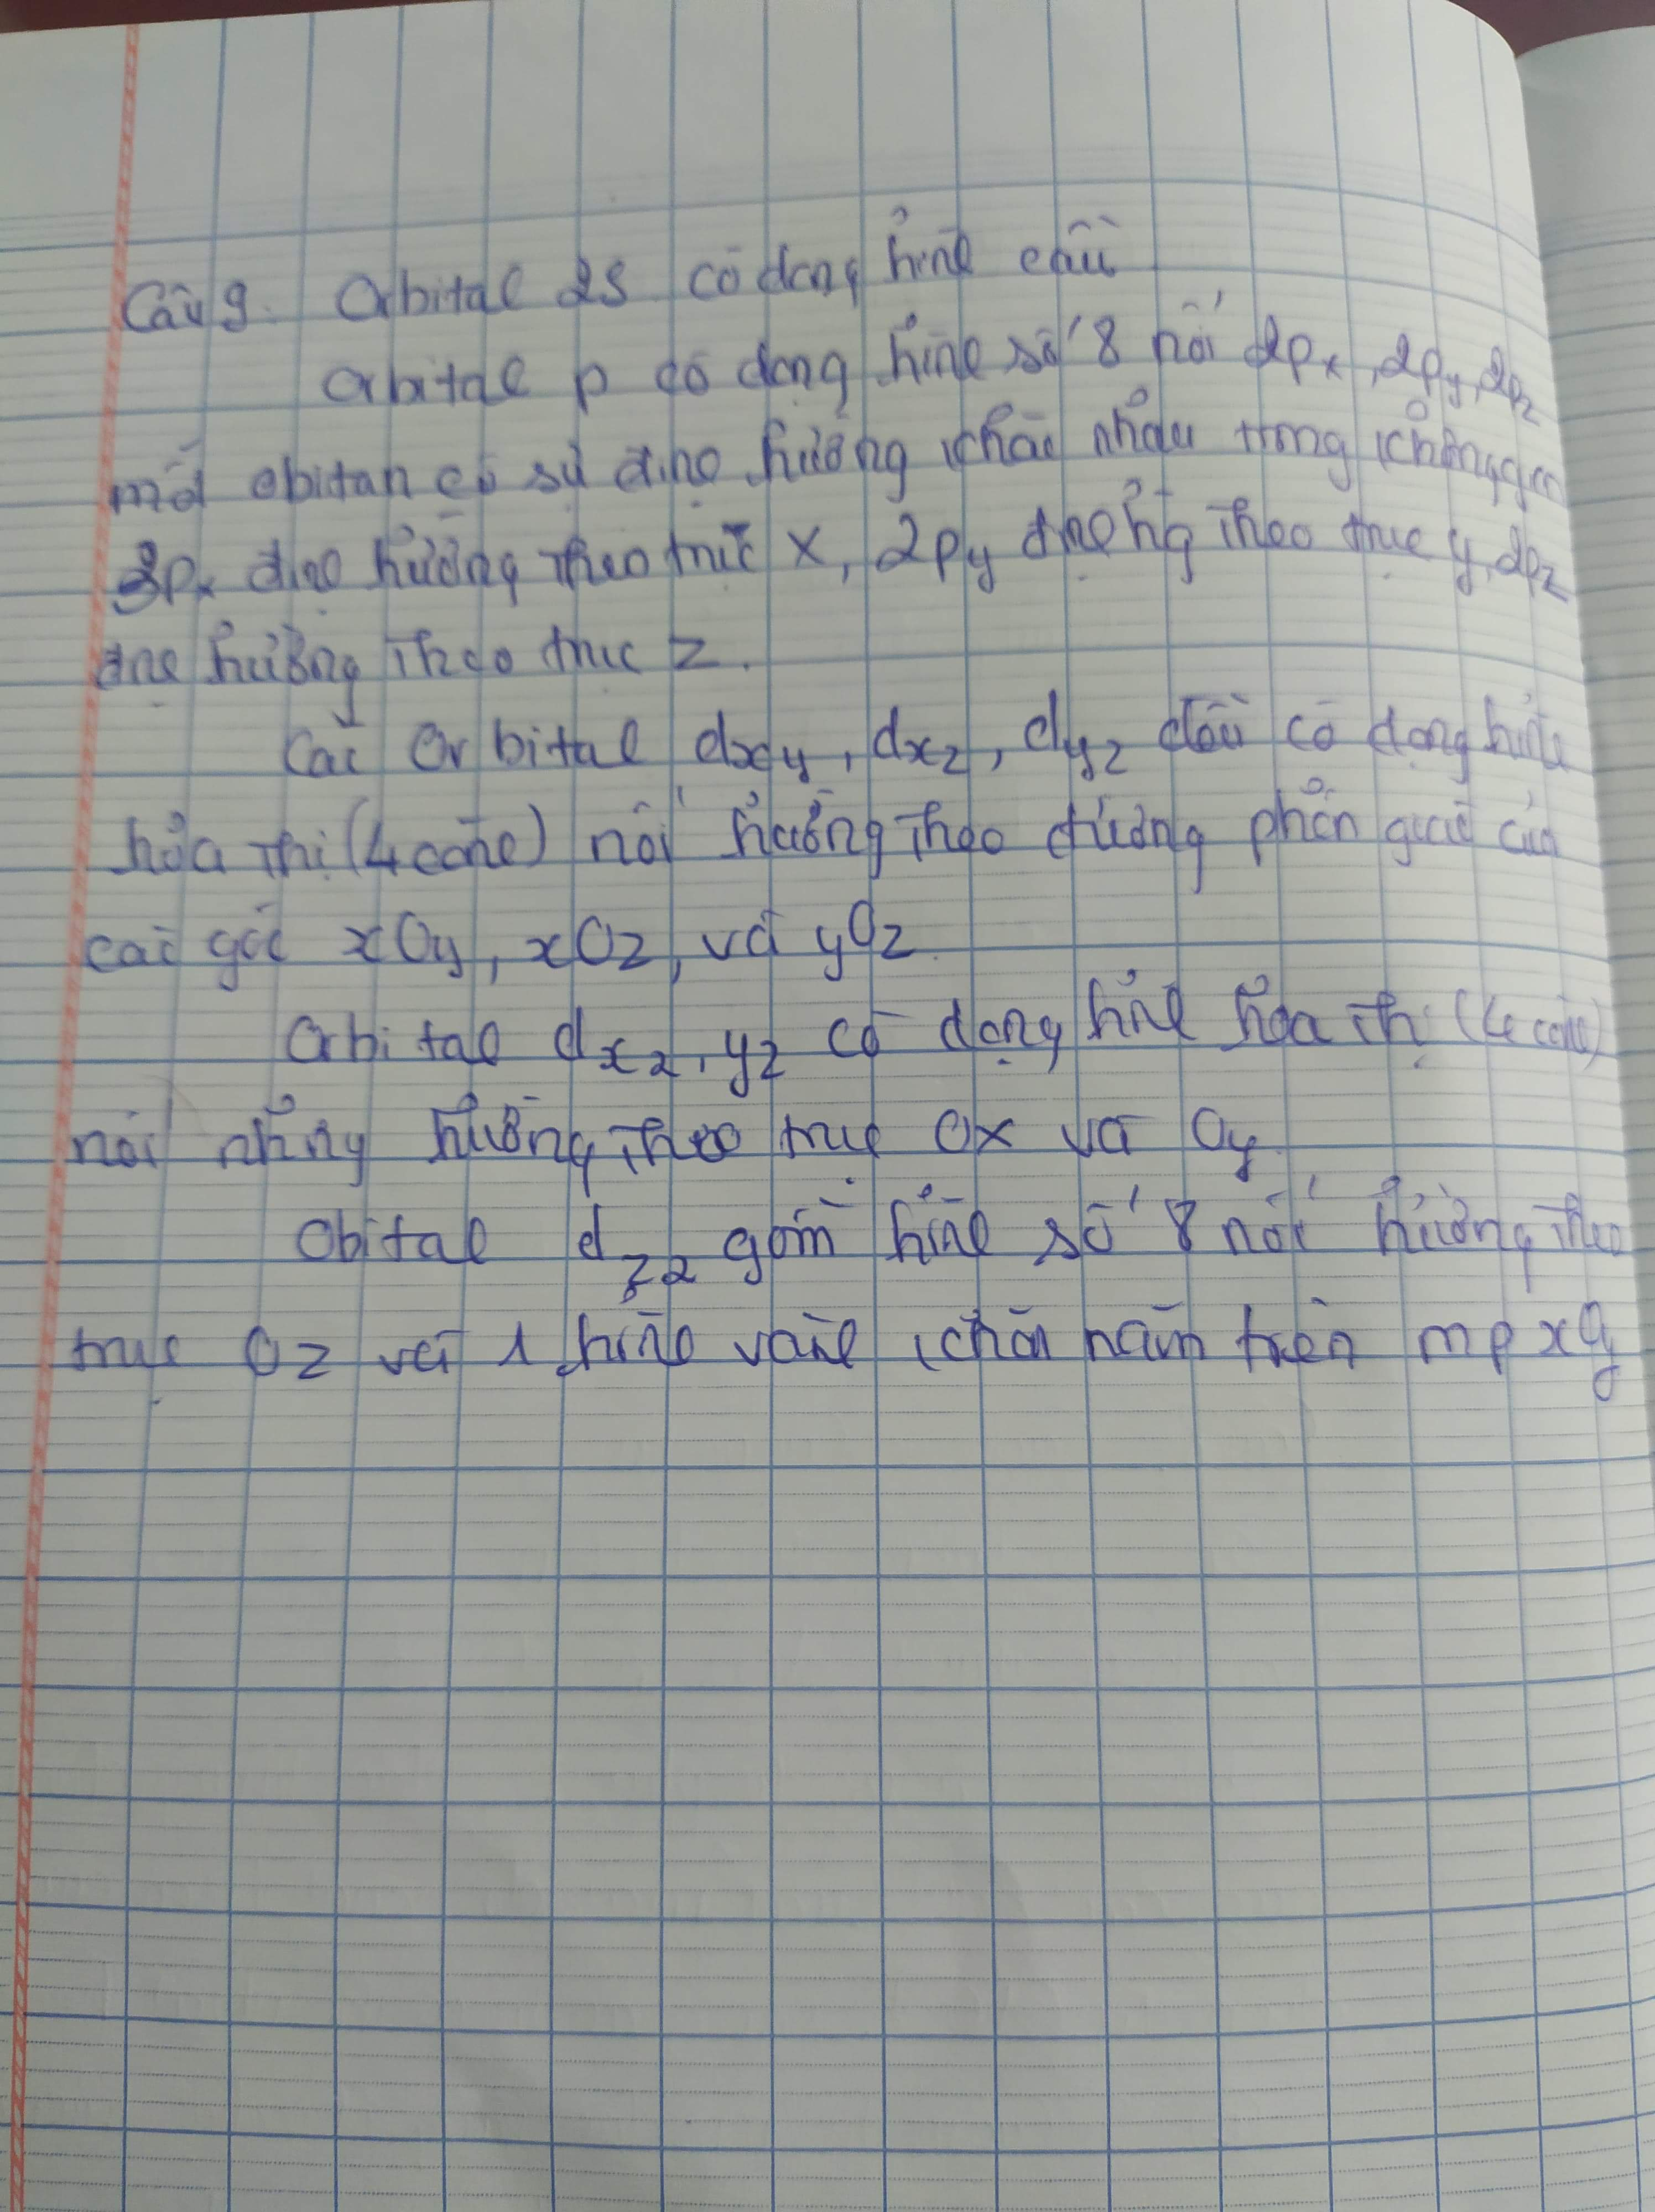 Câu 9. Orbital 2s có dạng hình cầu
Orbital p có dạng hình số 8 nổi 2px, 2py, 2pz
mỗi obitan có sự định hướng khác nhau trong không gian
2px định hướng theo trục x, 2py định hướng theo trục y, 2pz
định hướng theo trục z.
Các Orbital dxy, dxz, dyz đều có dạng hình
hoa thị (4 cánh) nổi hướng theo đường phân giác của
các góc xOy, xOz, và yOz.
Orbital dx2, y2 có dạng hình hoa thị (4 cánh)
nổi nhưng hướng theo trục Ox và Oy
Obital dz2 gồm hình số 8 nổi hướng theo
trục Oz và 1 hình vành khăn nằm trên mp xOy